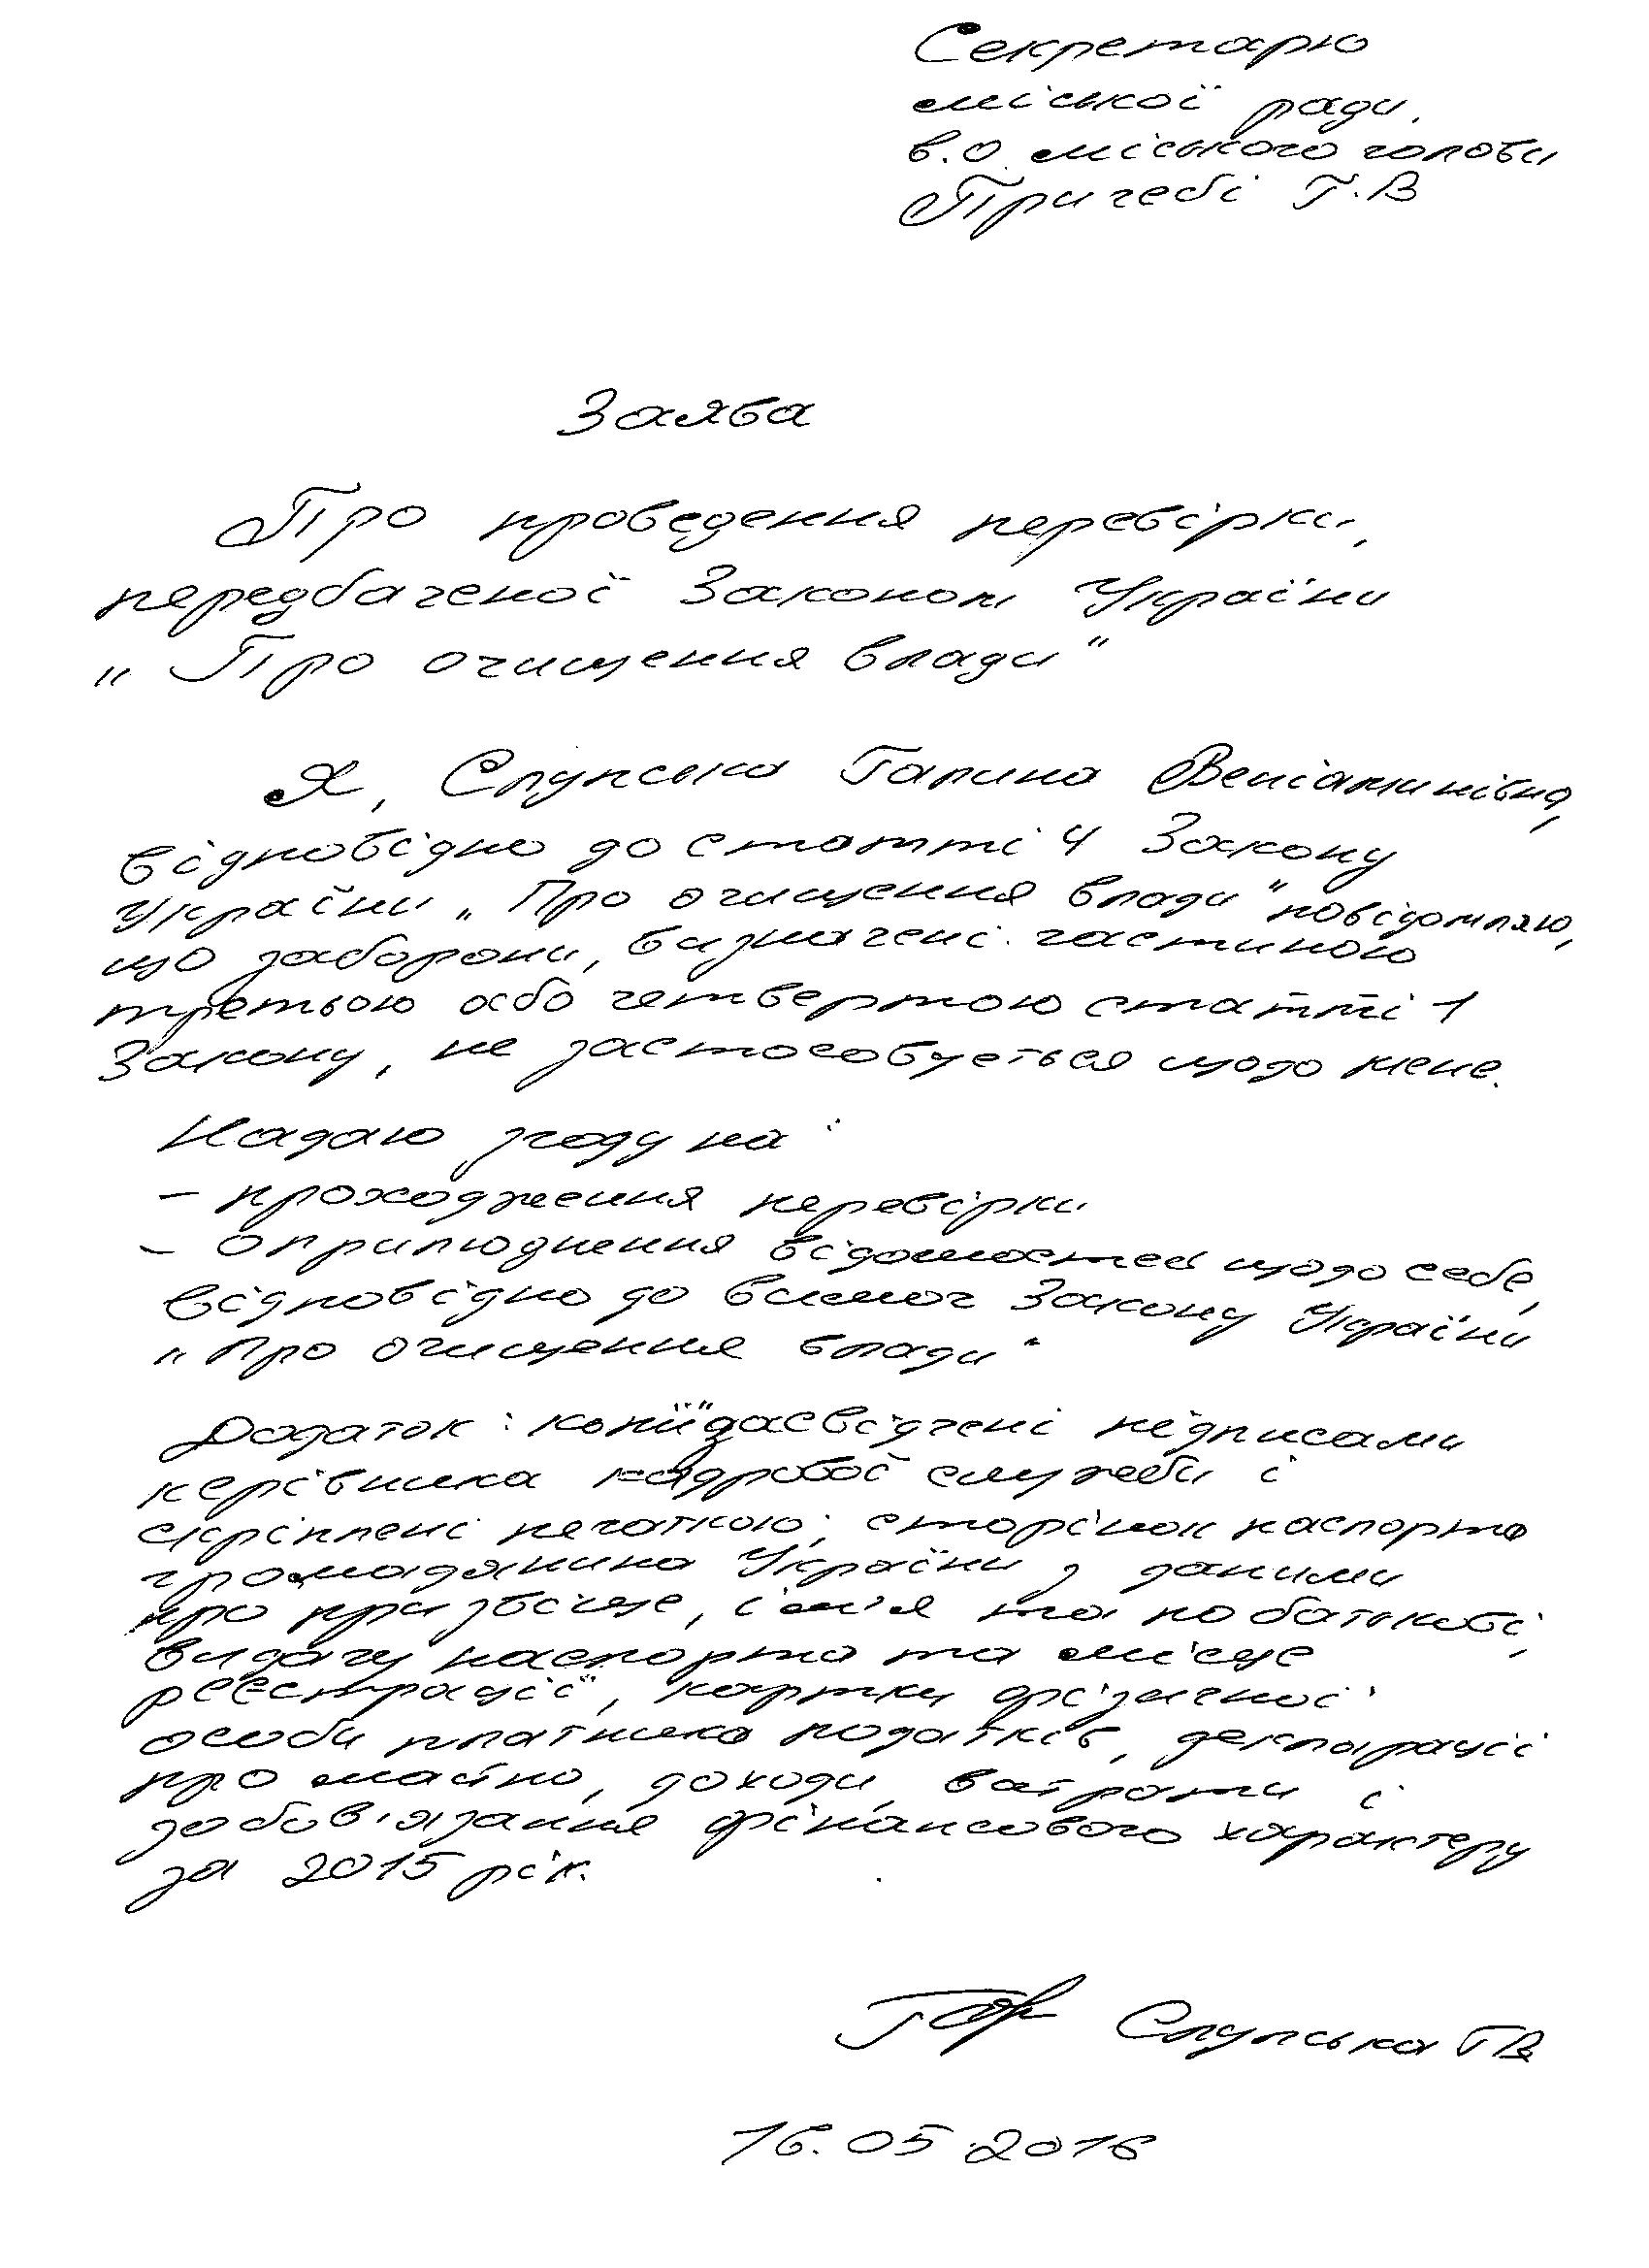 Секретарю
міської ради,
в.о. міського голови
Пригебі Г.В
Заява
Про проведення перевірки,
передбаченої Законом України
„Про очищення влади"
Я, Слупська Галина Веніамінівна,
відповідно до статті 4 Закону
України „Про очищення влади" повідомляю,
що заборони, визначені частиною
третьою або четвертою статті 1
Закону, не застосовується щодо мене.
Надаю згоду на:
- проходження перевірки
- оприлюднення відомостей щодо себе,
відповідно до вимог Закону України
„Про очищення влади"
Додаток: копії засвідчені підписами
керівника кадрової служби і
скріплені печаткою; сторінок паспорта
громадянина України з даними
про прізвіще, ім'я та по батькові,
видачу паспорта та місце
реєстрації, картки фізичної
особи платника податків, декларації
про майно, доходи, ватрати і
зобов'язання фінансового характеру
за 2015 рік.
Слупська Г В
16.05.2016